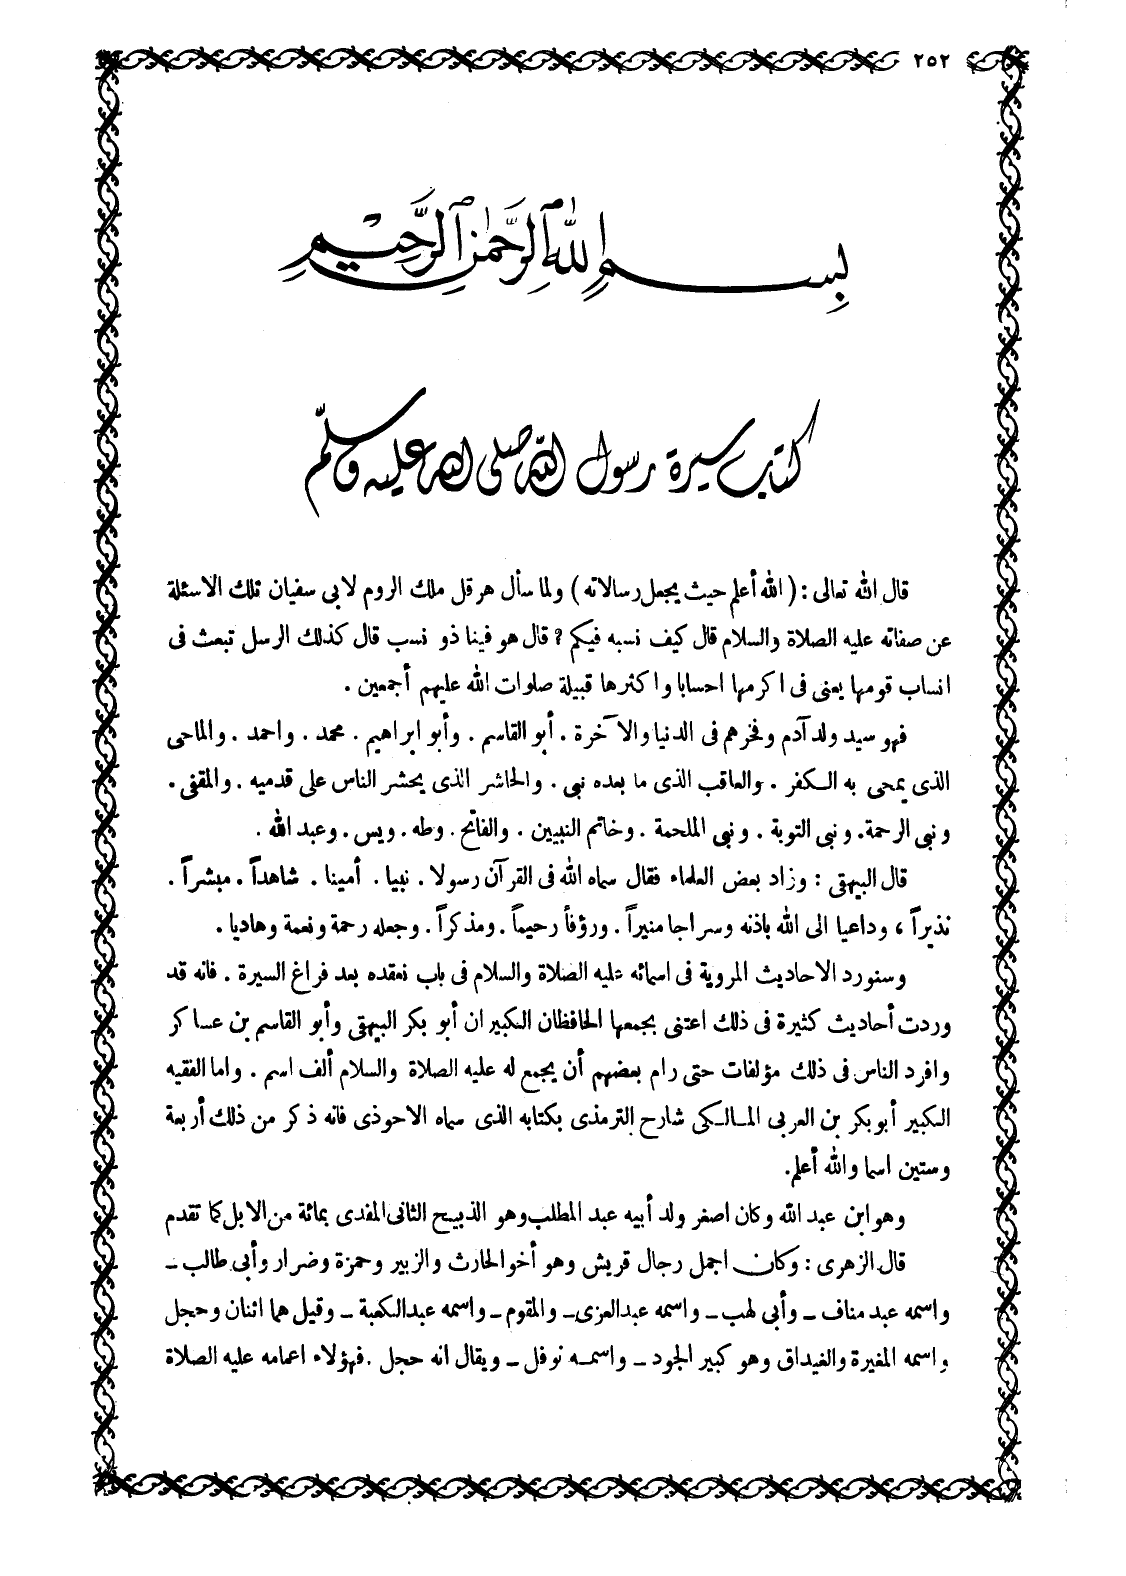 ٢٥٢
بسم الله الرحمن الرحيم
كتاب سيرة رسول الله صلى الله عليه وسلم
قال الله تعالى : ( الله أعلم حيث يجعل رسالاته ) ولما سأل هرقل ملك الروم لابى سفيان تلك الاسئلة
عن صفاته عليه الصلاة والسلام قال كيف نسبه فيكم ؟ قال هو فينا ذو نسب قال كذلك الرسل تبعث فى
انساب قومها يعنى فى اكرمها احسابا واكثرها قبيلة صلوات الله عليهم أجمعين .
فهو سيد ولد آدم وفخرهم فى الدنيا والآخرة . أبو القاسم . وأبو ابراهيم . محمد . واحمد . والماحى
الذى يمحى به الكفر . والعاقب الذى ما بعده نبى . والحاشر الذى يحشر الناس على قدميه . والمقفى .
ونبى الرحمة. ونبى التوبة . ونبى الملحمة . وخاتم النبيين . والفاتح . وطه . ويس . وعبد الله .
قال البيهقى : وزاد بعض العلماء فقال سماه الله فى القرآن رسولا . نبيا . أمينا . شاهداً . مبشراً .
نذيراً ، وداعيا الى الله باذنه وسراجا منيراً . ورؤفاً رحيماً . ومذكراً . وجعله رحمة ونعمة وهاديا .
وسنورد الاحاديث المروية فى اسمائه عليه الصلاة والسلام فى باب نعقده بعد فراغ السيرة . فانه قد
وردت أحاديث كثيرة فى ذلك اعتنى بجمعها الحافظان الكبيران أبو بكر البيهقى وأبو القاسم بن عساكر
وافرد الناس فى ذلك مؤلفات حتى رام بعضهم أن يجمع له عليه الصلاة والسلام ألف اسم . واما الفقيه
الكبير أبو بكر بن العربى المالكى شارح الترمذى بكتابه الذى سماه الاحوذى فانه ذكر من ذلك أربعة
وستين اسما والله أعلم.
وهو ابن عبد الله وكان اصغر ولد أبيه عبد المطلب وهو الذبيح الثانى المفدى بمائة من الابل كما تقدم
قال الزهرى : وكان اجمل رجال قريش وهو أخو الحارث والزبير وحمزة وضرار وأبى طالب ـ
واسمه عبد مناف ـ وأبى لهب ـ واسمه عبد العزى ـ والمقوم ـ واسمه عبد الكعبة ـ وقيل هما اثنان وحجل
واسمه المغيرة والغيداق وهو كبير الجود ـ واسمه نوفل ـ ويقال انه حجل . فهؤلاء اعمامه عليه الصلاة